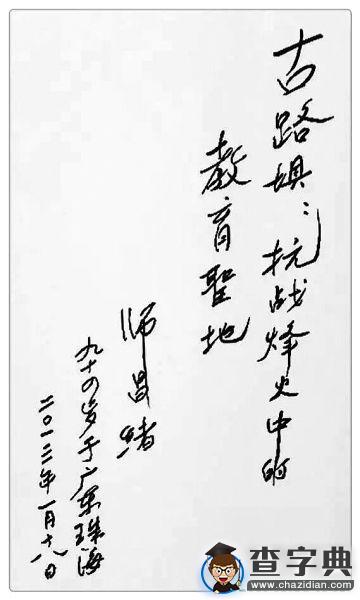 古路坝：抗战烽火中的
教育聖地
师昌绪
九十四岁于广东珠海
二〇一二年一月十八日
查字典
www.chazidian.com